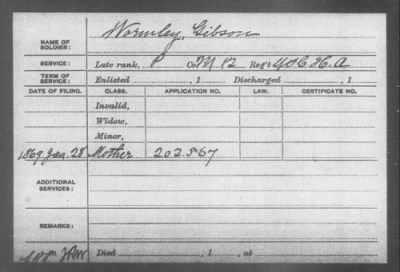 NAME OF SOLDIER: Wormley, Gibson
SERVICE: Late rank, P Co. M 12 Reg't U.S.C.H.A
TERM OF SERVICE: Enlisted , 1 Discharged , 1
DATE OF FILING. CLASS. APPLICATION NO. LAW. CERTIFICATE NO.
Invalid,
Widow,
Minor,
1869 Jan. 28 Mother 202.567
ADDITIONAL SERVICES:
REMARKS:
Died , 1 , at